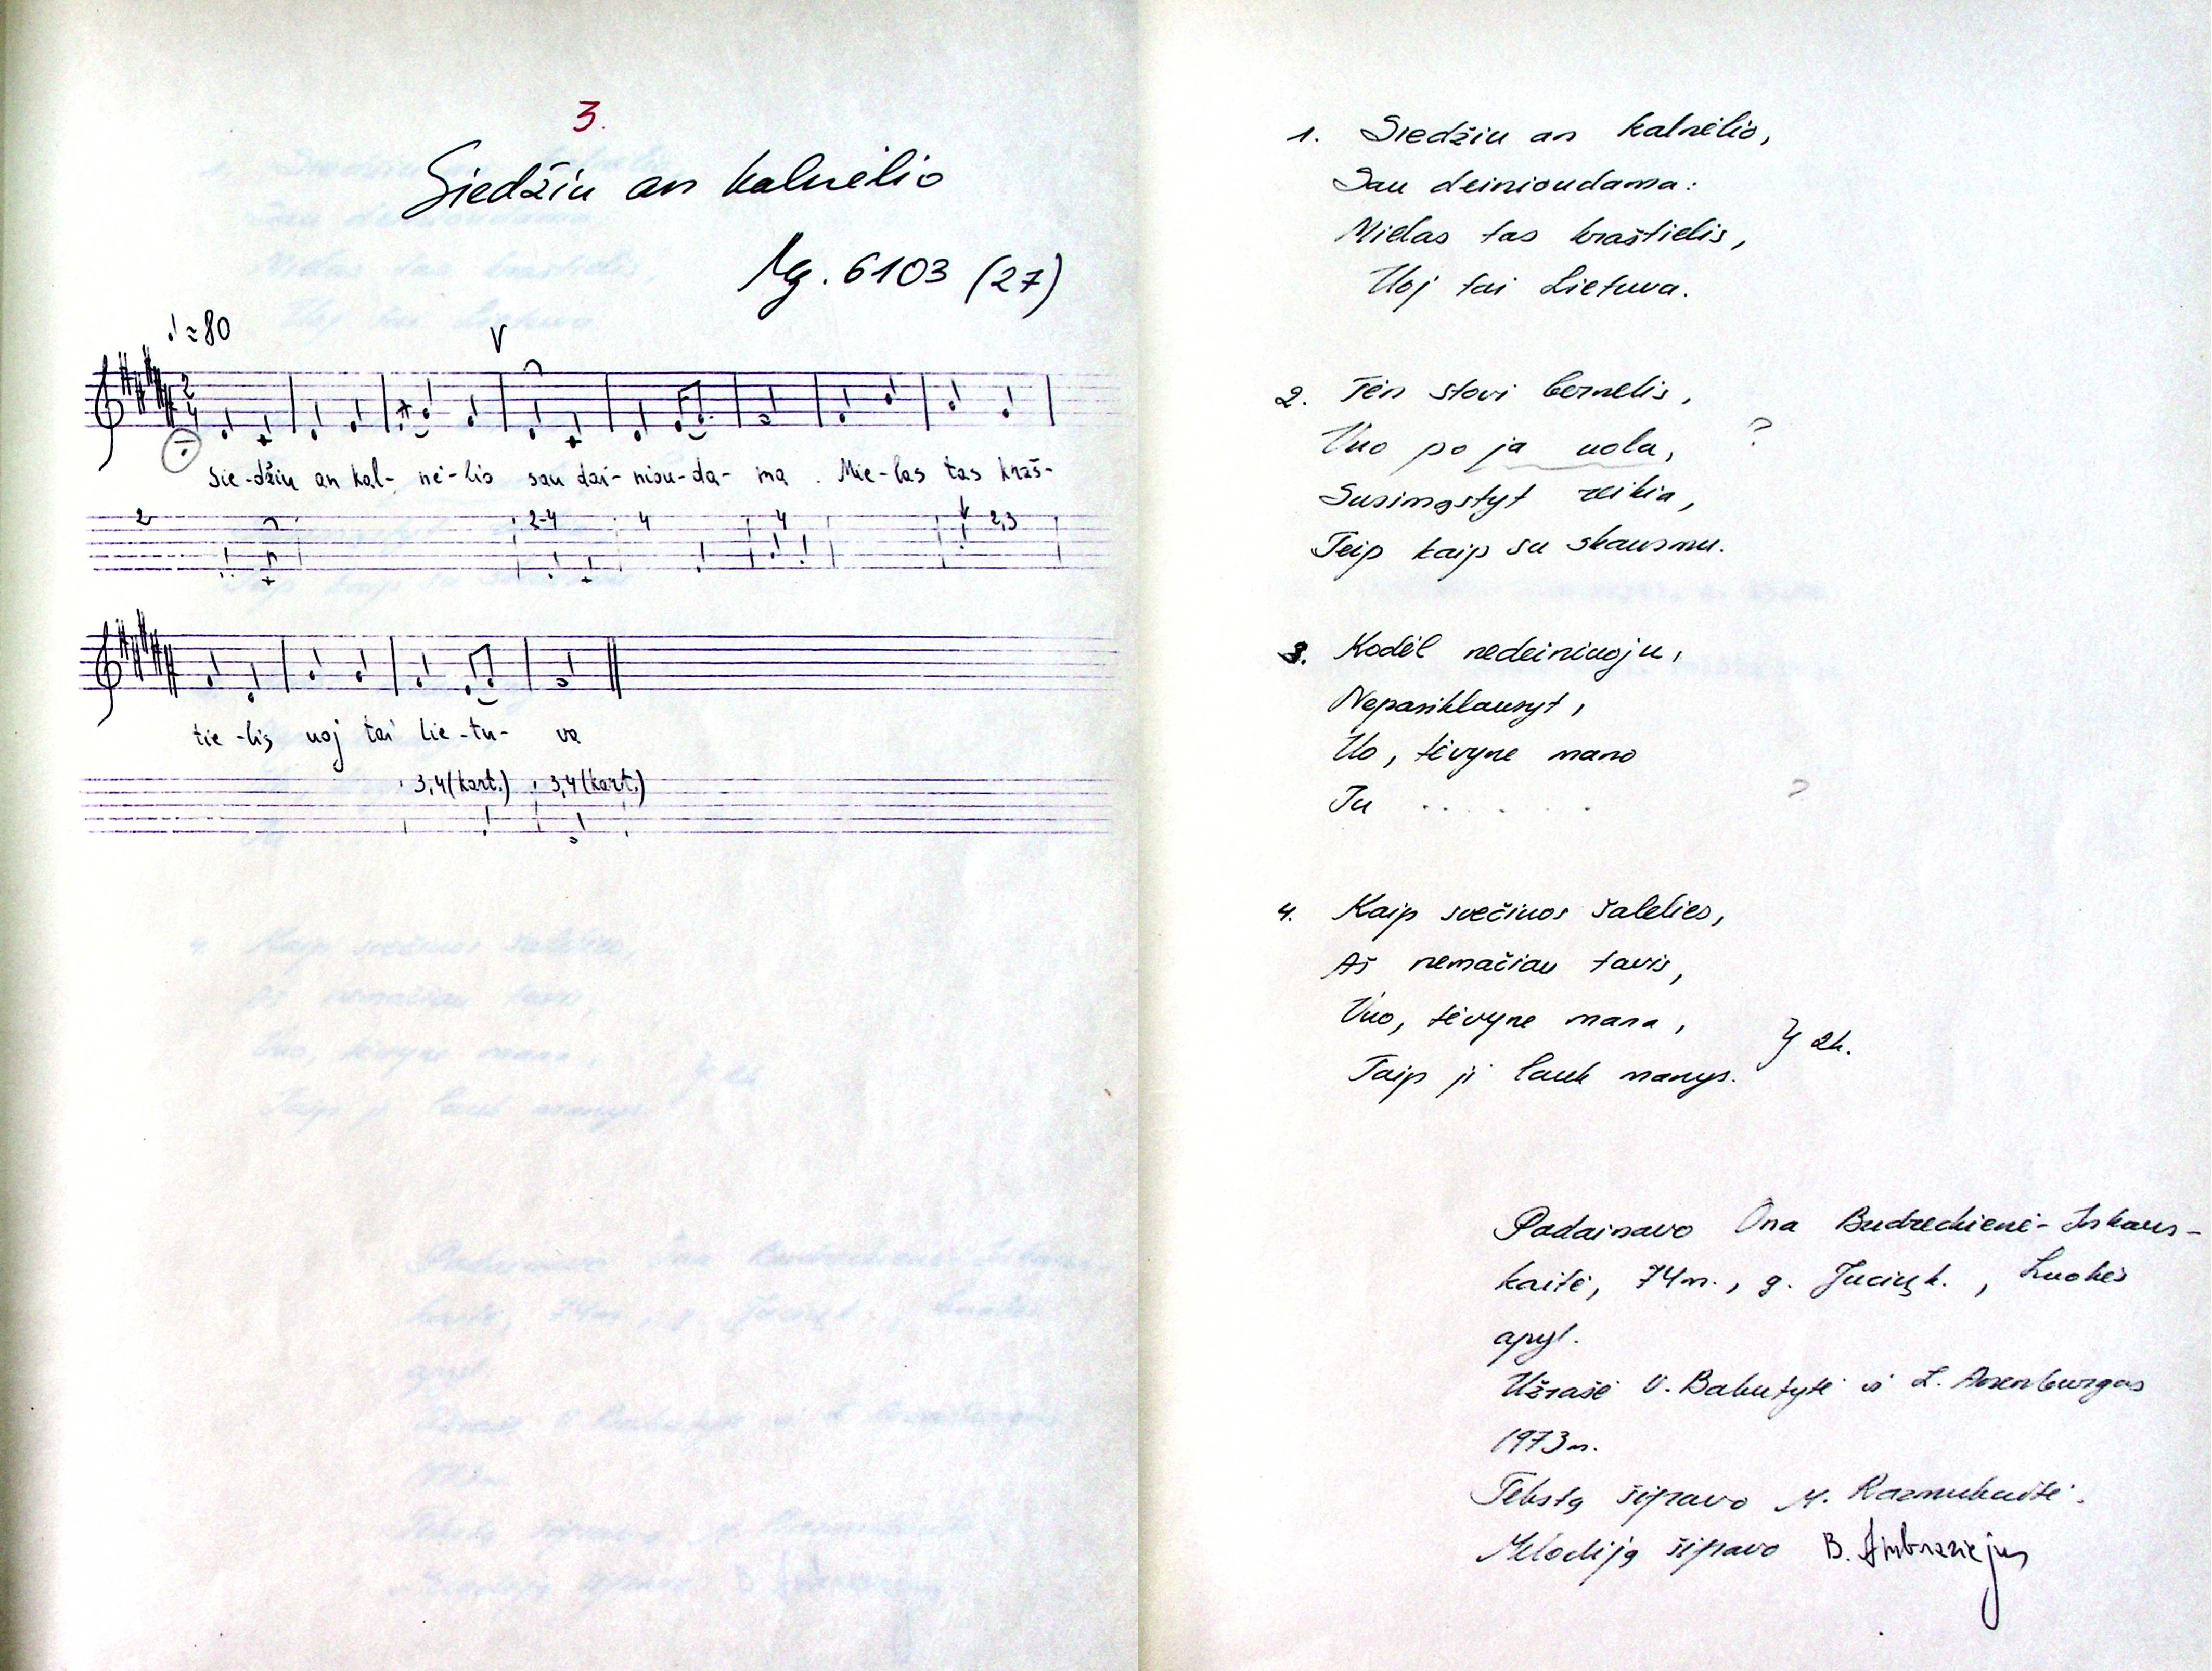 3.
Siedžiu an kalnėlio
Mg. 6103 (27)
♩≈80
V
2
4
Sie-džiu an kal- nė-lio sau dai-niou-da- ma. Mie-las tas kraš-
2 2-4 4 4 2,3
tie-lis uoj tai Lie-tu- va
3,4(kart.) 3,4(kart.)
1. Siedžiu an kalnėlio,
Sau deinioudama:
Mielas tas kraštielis,
Uoj tai Lietuva.
2. Tėn stovi bernelis,
Vuo po ja uola, ?
Susimąstyt reikia,
Teip kaip su skausmu.
3. Kodėl nedeiniuoju,
Nepasiklausyt,
Uo, tėvyne mano
Tu . . . . . . ?
4. Kaip svečiuos šalelies,
Aš nemačiau tavis,
Vuo, tėvyne mana,
Taip ji lauk manys. } 2k.
Padainavo Ona Budreckienė-
kaitė, 74m., g. Jucių k., Luokės
apyl.
Užrašė V. Bakutytė ir L.
1973m.
Tekstą šifravo M. Razmukaitė.
Melodiją šifravo B. Ambraziejus